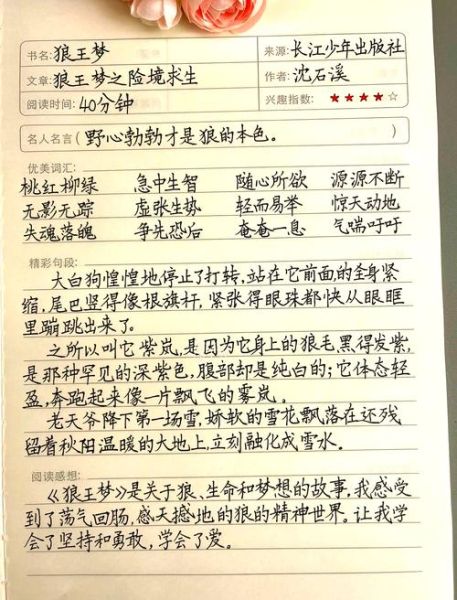 书名:狼王梦 来源:长江少年出版社
文章:狼王梦之险境求生 作者:沈石溪
阅读时间:40分钟 兴趣指数:★★★★☆
名人名言(野心勃勃才是狼的本色。)
优美词汇:
桃红柳绿 急中生智 随心所欲 源源不断
无影无踪 虚张生势 轻而易举 惊天动地
失魂落魄 争先恐后 奄奄一息 气喘吁吁
精彩句段:
大白狗惶惶地停止了打转,站在它前面的全身紧
缩,尾巴竖得像根旗杆,紧张得眼珠都快从眼眶
里蹦跳出来了。
之所以叫它紫岚,是因为它身上的狼毛,黑得发紫,
是那种罕见的深紫色,腹部却是纯白的;它体态轻
盈,奔跑起来像一片飘飞的雾岚。
老天爷降下第一场雪,娇软的雪花飘落在还残
留着秋阳温暖的大地上,立刻融化成雪水。
阅读感想:
《狼王梦》是关于狼、生命和梦想的故事,我感受
到了荡气回肠、感天撼地的狼的精神世界。让我学
会了坚持和勇敢,学会了爱。